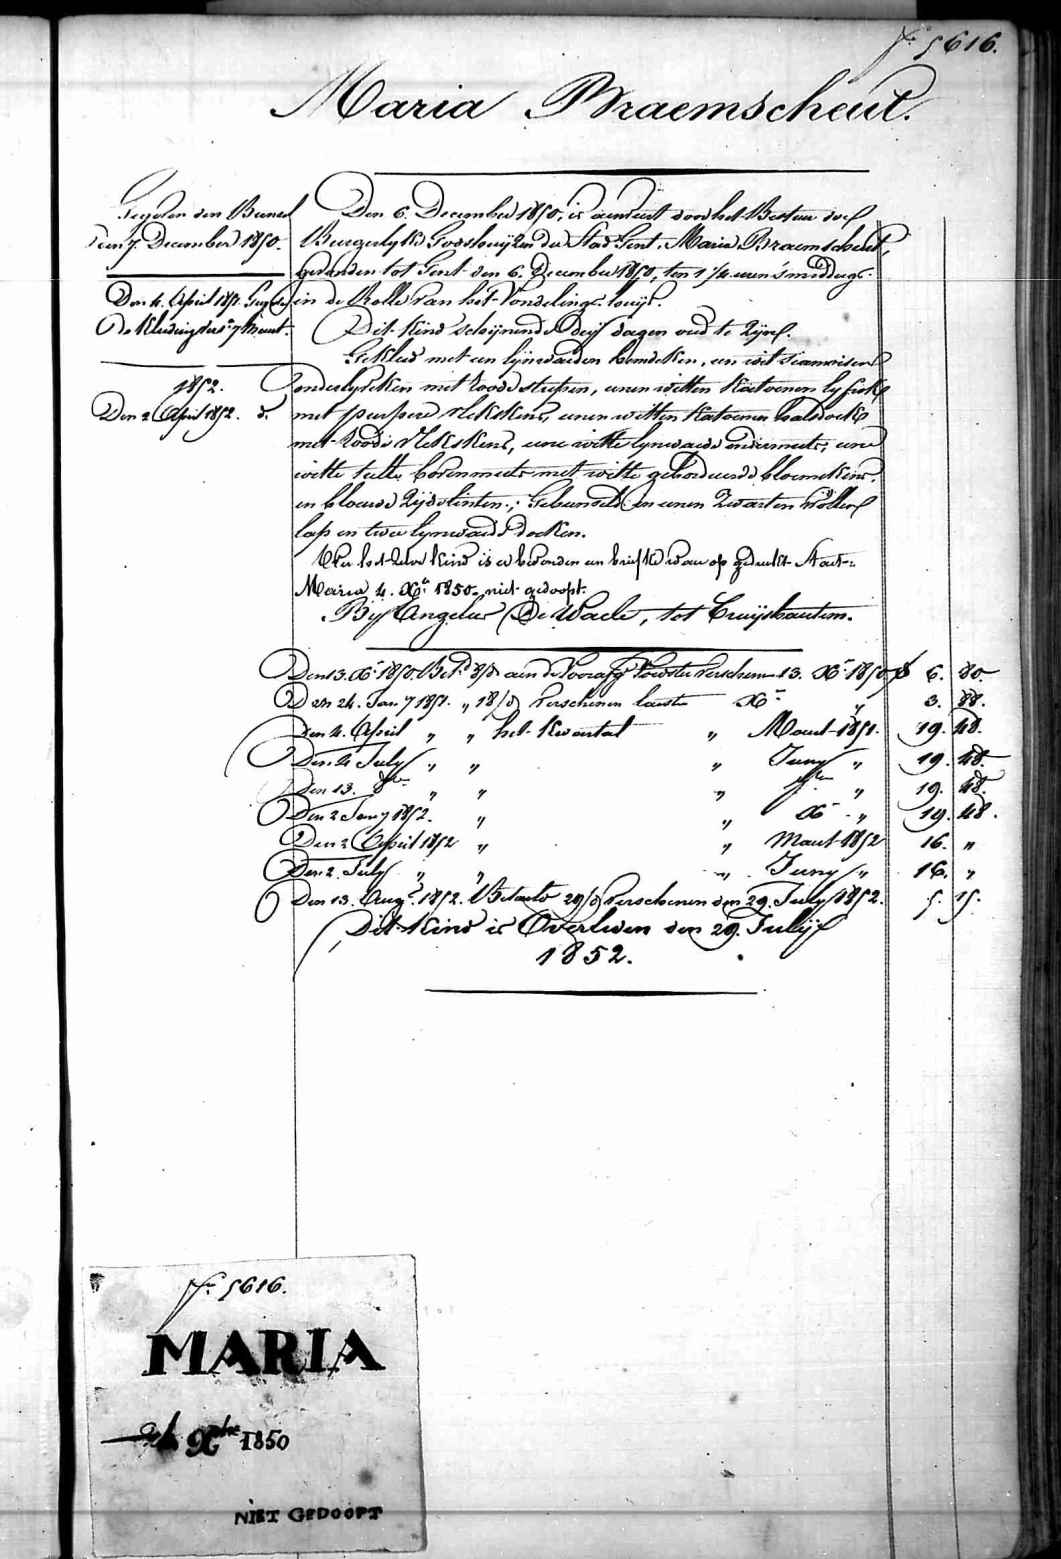 Nr. 5616.
Maria Braemscheut.
Gegeven den Bundel
den 7. December 1850.
Den 4. April 1851.
De Kleeding van 7 Maent.
1852.
Den 2 April 1852. d.
Den 6. December 1850, is aenveird door het Bestuer der
Burgerlyke Godshuyzen der Stad Gent, Maria Braemscheut,
gevonden tot Gent den 6. December 1850, ten 1 1/4 uren 's middags
in de Rolle van het Vondelings-huys.
Dit Kind schynende dry dagen oud te zyn.
Gekleed met een lynwaeden hemdeken, een wit siamoisen
onderlyfken met roode streepen, eenen witten katoenen lyfrok
met purpere vlekskens, eenen witten katoenen halsdoek
met roode vlekskens, eene witte lynwaede ondermuts, eene
witte tulle bovenmuts met witte geborduerde bloemekens,
en blauwe zyde linten; Gebunseld in eenen zwarten wollen
lap en twee lynwaede doeken.
Op het zelve kind is er bevonden een briefke waer op gedrukt staet:
Maria 4. Xbr. 1850. niet gedoopt.
By Angela De Waele, tot Cruyshautem.
Den 13. Xbr 1850. Bet. 8/d aen de Voorafg. Voedster verschenen 13. Xbr 1850 f 6. 80
Den 24. Jany 1851. " 18/d verschenen laeste Xbr " 3. 88.
Den 4. April " " het Kwartael " Maert 1851. 19. 48.
Den 4 July " " " Juny " 19. 48.
Den 13. 8br " " " 7br " 19. 48.
Den 2 Jany 1852. " " Xbr " 19. 48.
Den 2 April 1852 " " Maert 1852 16. "
Den 2. July " " " Juny " 16. "
Den 13. Aug. 1852. Betaeld 29/d verschenen den 29. July 1852. 5. 15.
Dit Kind is Overleden den 29. July
1852.
Nr. 5616.
MARIA
4 Xbre 1850
NIET GEDOOPT